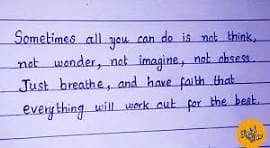 Sometimes all you can do is not think,
not wonder, not imagine, not obsess.
Just breathe, and have faith that
everything will work out for the best.